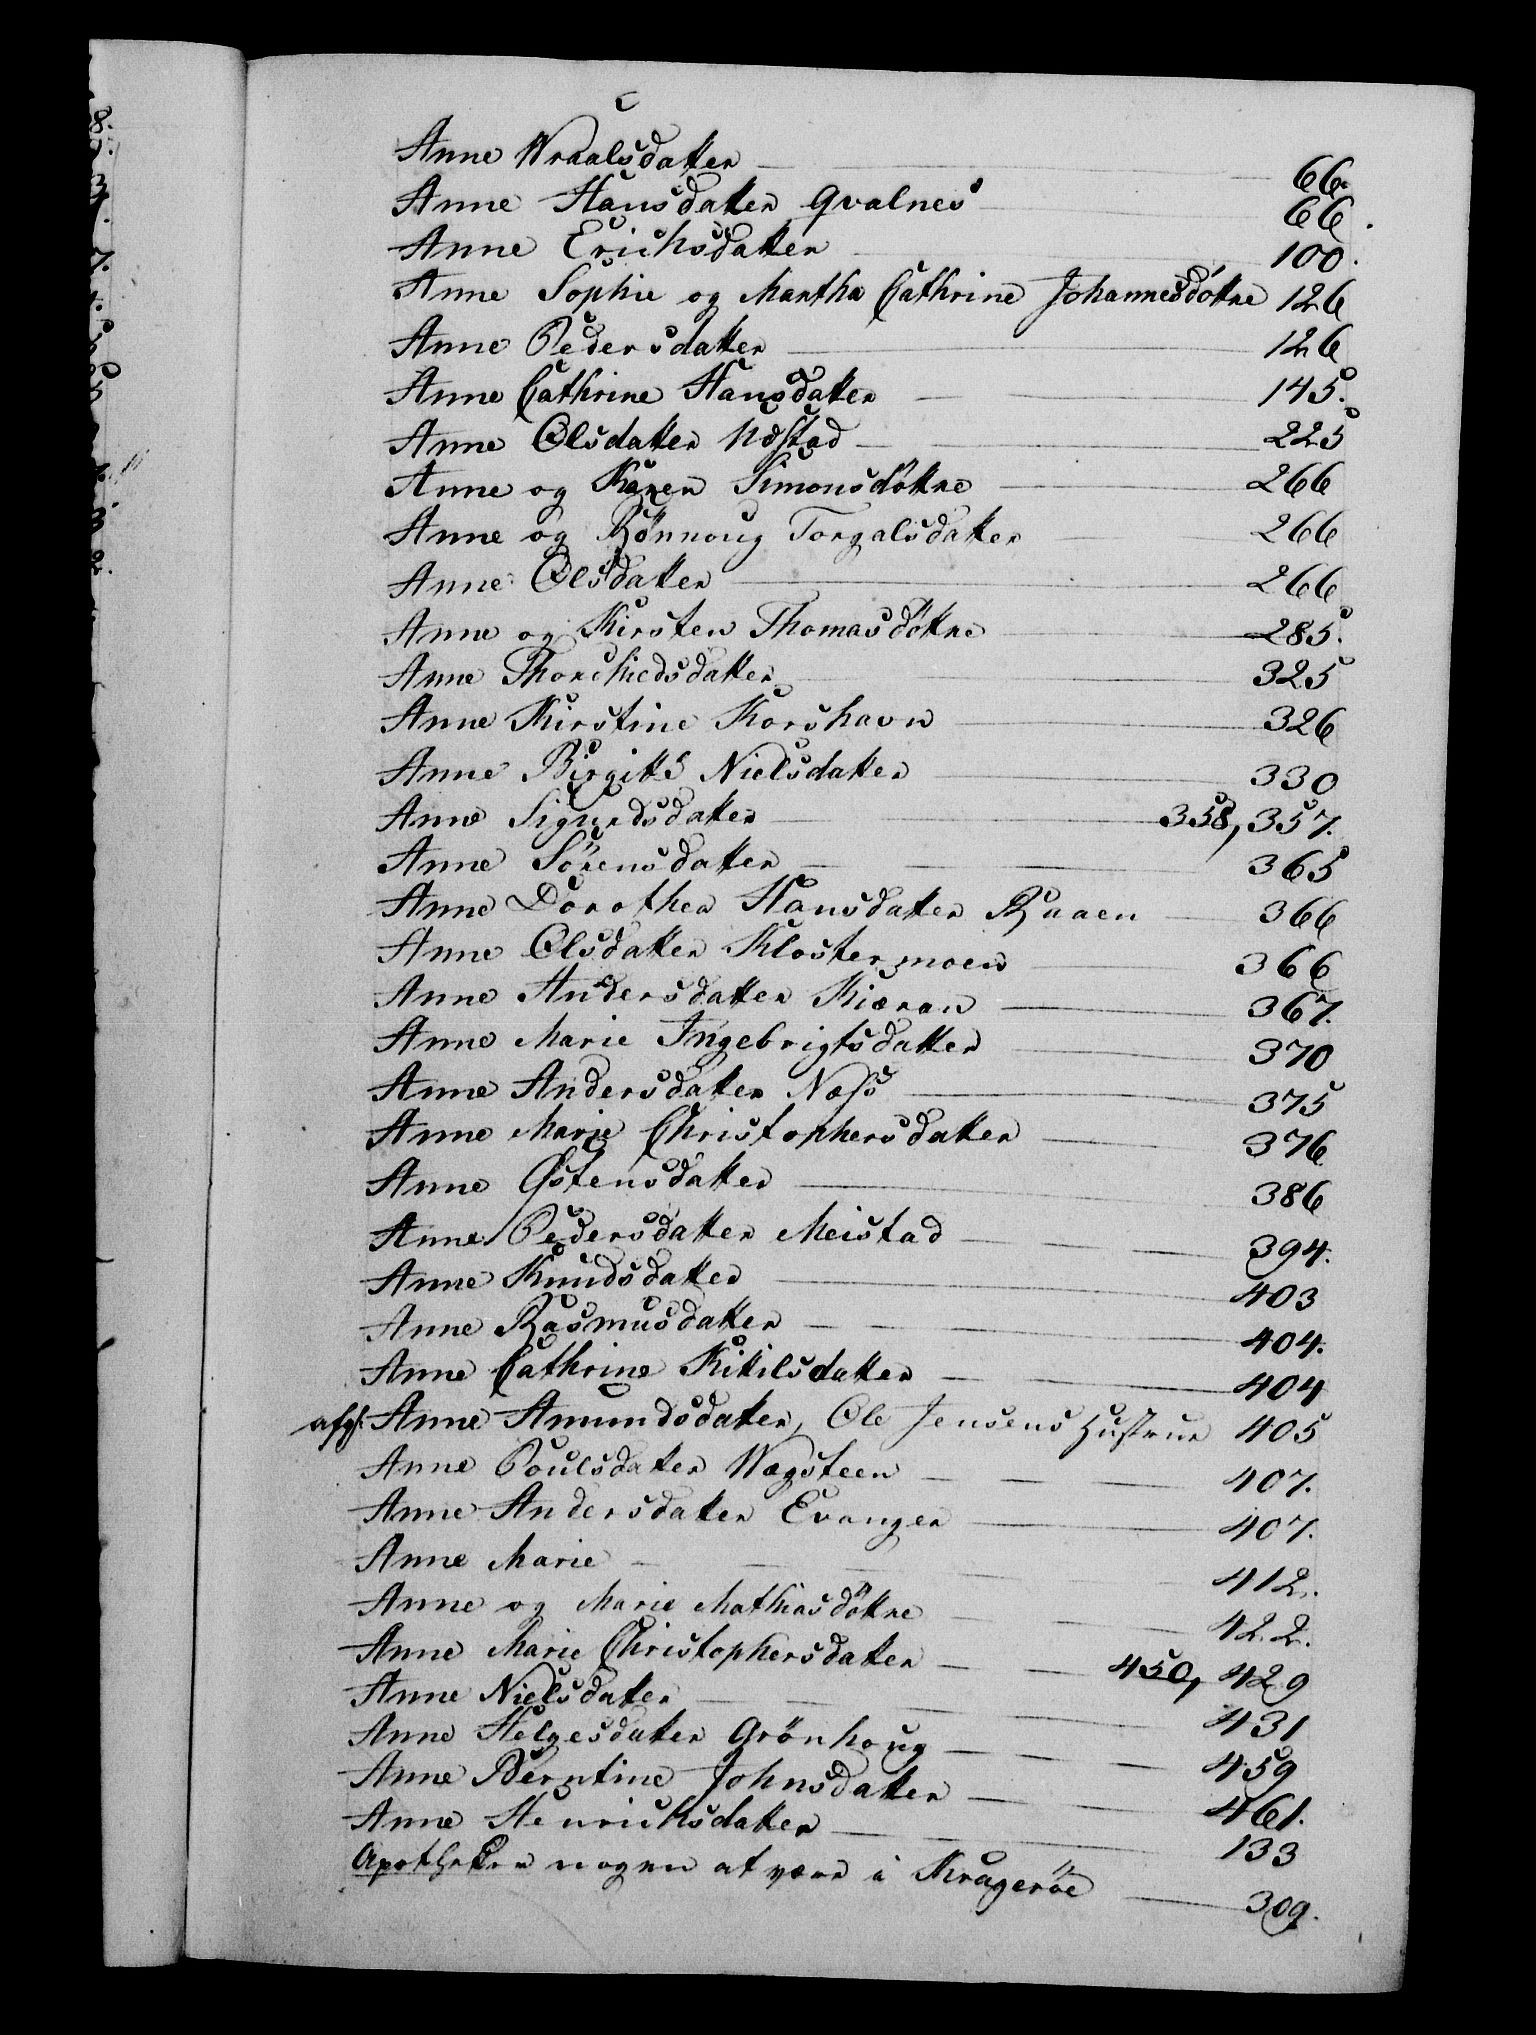 Anne Wraalsdatter 66.
Anne Hansdatter Qvalnes 66.
Anne Erichsdatter 100.
Anne Sophie og Martha Cathrine Johannesdötre 126
Anne Pedersdatter 126
Anne Cathrine Hansdatter 145.
Anne Olsdatter Næstad 225
Anne og Karen Simonsdöttre 266
Anne og Rönnoug Torgalsdatter 266
Anne Olsdatter 266
Anne og Kirsten Thomasdöttre 285.
Anne Thorchiedsdatter 325
Anne Kirstine Korshavn 326
Anne Birgitte Nielsdatter 330
Anne Sigurdsdatter 358, 357.
Anne Sörensdatter 365
Anne Dorothea Hansdatter Ruaen 366
Anne Olsdatter Klostermoen 366
Anne Andersdatter Kiæran 367.
Anne Marie Ingebrigtsdatter 370
Anne Andersdatter Næss 375
Anne Marie Christophersdatter 376
Anne Østensdatter 386
Anne Pedersdatter Meistad 394.
Anne Knudsdatter 403
Anne Rasmusdatter 404.
Anne Cathrine Kittilsdatter 404
afg. Anne Amundsdatter, Ole Jensens Hustrue 405
Anne Poulsdatter Wægsteen 407.
Anne Andersdatter Evanger 407.
Anne Marie 412.
Anne og Marie Mathiasdöttre 422.
Anne Marie Christophersdatter 450, 429
Anne Nielsdatter 431
Anne Helgesdatter Grönhoug 459
Anne Berntine Johnsdatter 461.
Anne Henrichsdatter 133
Apotheker nogen at være i Kragerőe 309.